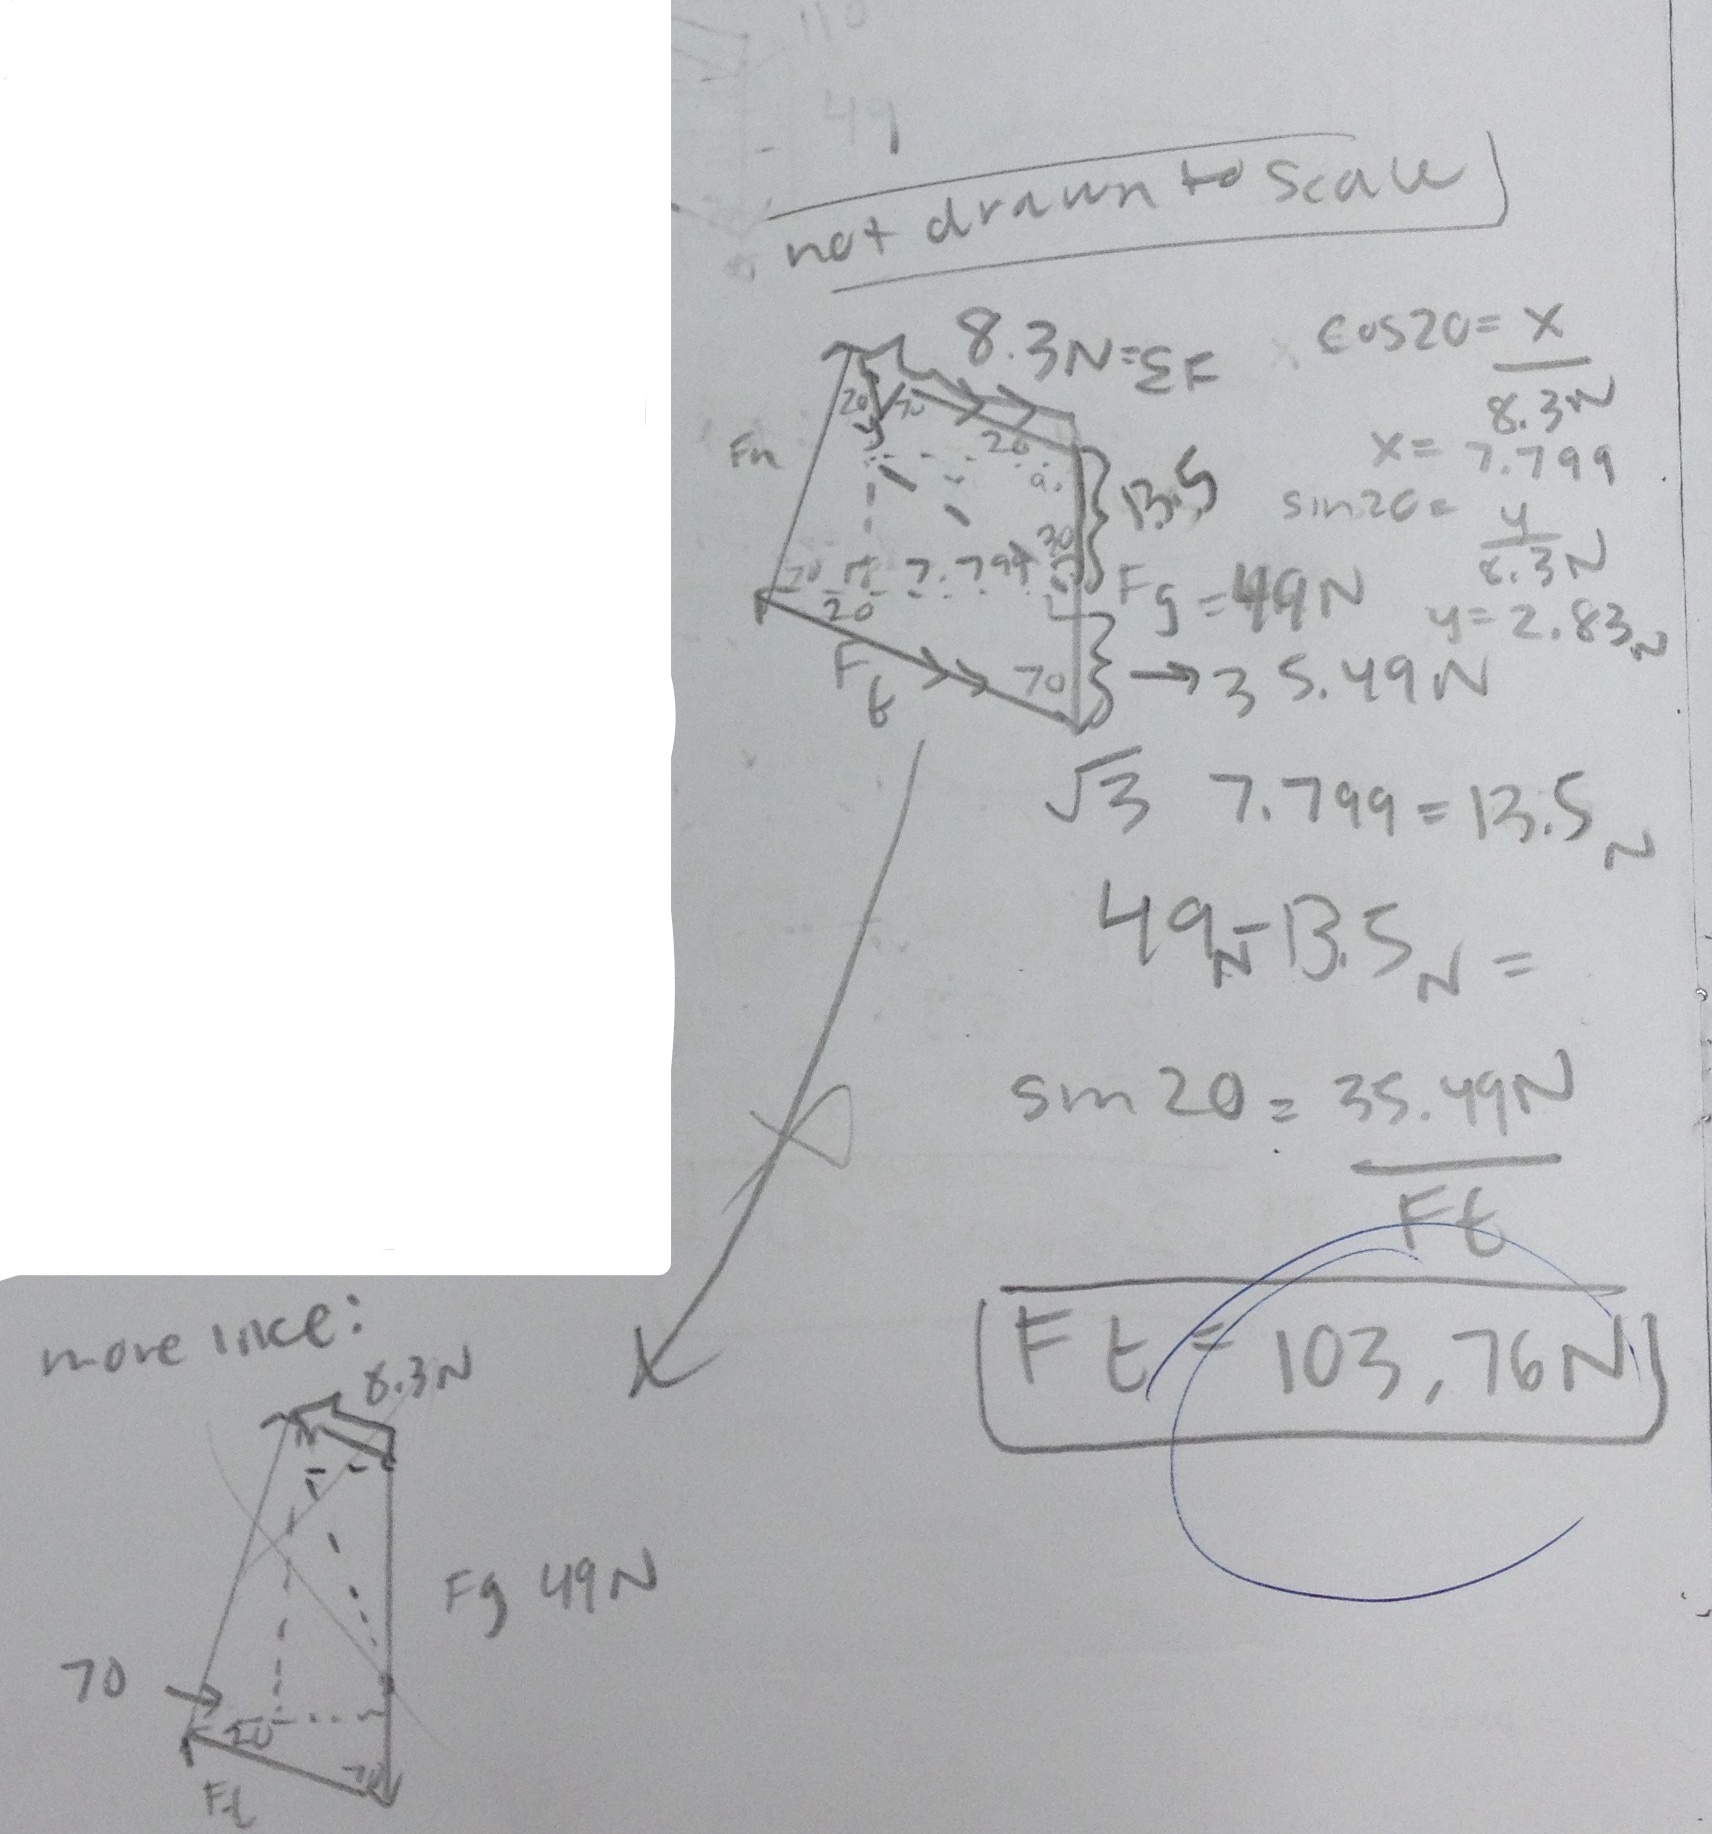 110
49
not drawn to scale
8.3N=ΣF
cos20= x
8.3N
x= 7.799
sin20= y
8.3N
y= 2.83N
20 70
20
Fn
13.5
30
70 7.799
20
Fg =49N
Ft
70
→35.49N
√3 7.799=13.5N
49N-13.5N =
sin20= 35.49N
Ft
Ft= 103.76N
more like:
8.3N
Fg 49N
70
20
70
Ft